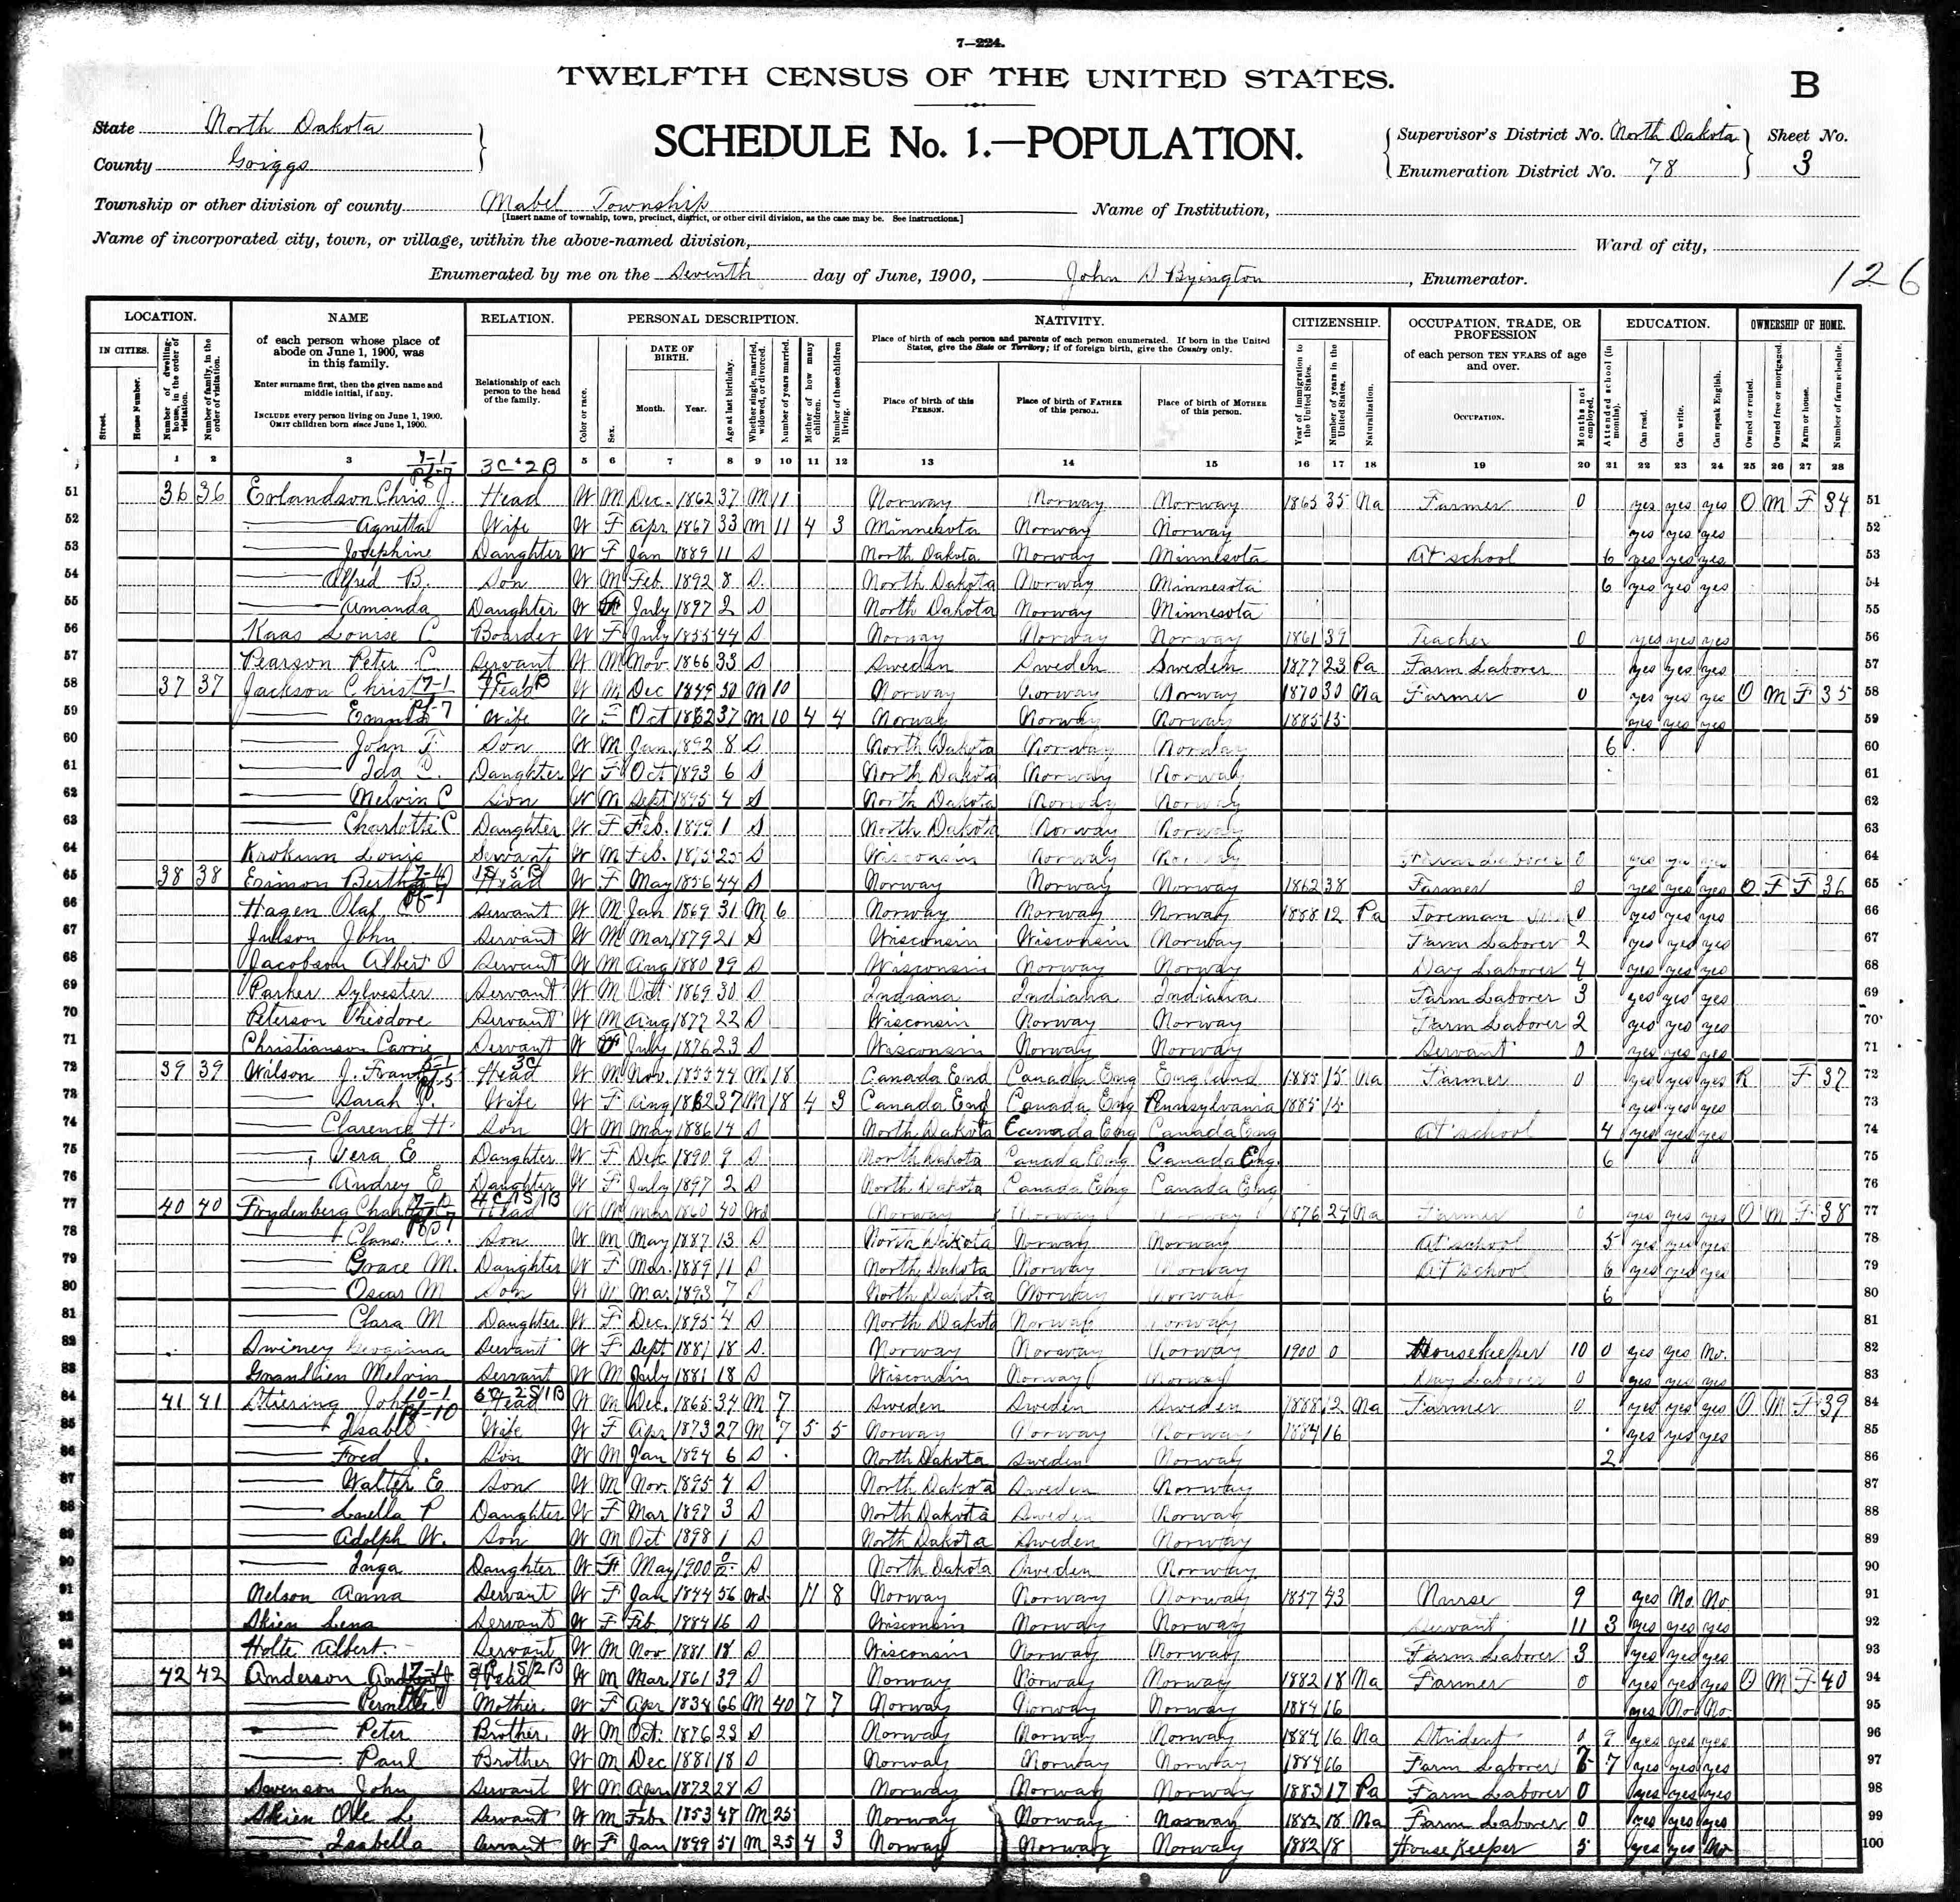 7—224.
TWELFTH CENSUS OF THE UNITED STATES.
B
State North Dakota
County Griggs
SCHEDULE No. 1.—POPULATION.
Supervisor's District No. North Dakota
Enumeration District No. 78
Sheet No. 3
Township or other division of county Mabel Township
[Insert name of township, town, precinct, district, or other civil division, as the case may be. See instructions.]
Name of Institution,
Name of incorporated city, town, or village, within the above-named division,
Ward of city,
Enumerated by me on the Seventh day of June, 1900, John S Byington, Enumerator.
126
LOCATION. NAME RELATION. PERSONAL DESCRIPTION. NATIVITY. CITIZENSHIP. OCCUPATION, TRADE, OR PROFESSION EDUCATION. OWNERSHIP OF HOME.
IN CITIES.
Street.
House Number.
Number of dwelling-house, in the order of visitation.
Number of family, in the order of visitation.
of each person whose place of abode on June 1, 1900, was in this family.
Enter surname first, then the given name and middle initial, if any.
INCLUDE every person living on June 1, 1900.
OMIT children born since June 1, 1900.
Relationship of each person to the head of the family.
Color or race.
Sex.
DATE OF BIRTH.
Month. Year.
Age at last birthday.
Whether single, married, widowed, or divorced.
Number of years married.
Mother of how many children.
Number of these children living.
Place of birth of each person and parents of each person enumerated. If born in the United States, give the State or Territory; if of foreign birth, give the Country only.
Place of birth of this PERSON.
Place of birth of FATHER of this person.
Place of birth of MOTHER of this person.
Year of immigration to the United States.
Number of years in the United States.
Naturalization.
of each person TEN YEARS of age and over.
OCCUPATION.
Months not employed.
Attended school (in months).
Can read.
Can write.
Can speak English.
Owned or rented.
Owned free or mortgaged.
Farm or house.
Number of farm schedule.
1 2 3 5 6 7 8 9 10 11 12 13 14 15 16 17 18 19 20 21 22 23 24 25 26 27 28
51 36 36 Erlandson Chris J. Head W M Dec. 1862 37 M 11 Norway Norway Norway 1865 35 Na Farmer 0 yes yes yes O M F 34 51
52 Agnetta Wife W F Apr. 1867 33 M 11 4 3 Minnesota Norway Norway yes yes yes 52
53 Josephine Daughter W F Jan 1889 11 S North Dakota Norway Minnesota At school 6 yes yes yes 53
54 Alfred B. Son W M Feb. 1892 8 S. North Dakota Norway Minnesota 6 yes yes yes 54
55 Amanda Daughter W F July 1897 2 S North Dakota Norway Minnesota 55
56 Kaas Louise C Boarder W F July 1855 44 S Norway Norway Norway 1861 39 Teacher 0 yes yes yes 56
57 Pearson Peter C Servant W M Nov. 1866 33 S Sweden Sweden Sweden 1877 23 Pa Farm Laborer yes yes yes 57
58 37 37 Jackson Christ Head W M Dec 1849 50 M 10 Norway Norway Norway 1870 30 Na Farmer 0 yes yes yes O M F 35 58
59 Wife W F Oct 1862 37 M 10 4 4 Norway Norway Norway 1885 15 yes yes yes 59
60 John T. Son W M Jan 1892 8 S North Dakota Norway Norway 6 60
61 Ida C. Daughter W F Oct 1893 6 S North Dakota Norway Norway 61
62 Melvin C Son W M Sept 1895 4 S North Dakota Norway Norway 62
63 Charlotte C Daughter W F Feb. 1899 1 S North Dakota Norway Norway 63
64 Krokum Louis Servant W M Feb. 1875 25 S Wisconsin Norway Norway Farm Laborer 0 yes yes yes 64
65 38 38 Head W F May 1856 44 S Norway Norway Norway 1862 38 Farmer 0 yes yes yes O F F 36 65
66 Hagen Olaf C Servant W M Jan 1869 31 M 6 Norway Norway Norway 1888 12 Pa Foreman 0 yes yes yes 66
67 Julson John Servant W M Mar 1879 21 S Wisconsin Wisconsin Norway Farm Laborer 2 yes yes yes 67
68 Jacobson Albert O Servant W M Aug 1880 19 S Wisconsin Norway Norway Day Laborer 4 yes yes yes 68
69 Parker Sylvester Servant W M Oct 1869 30 S Indiana Indiana Indiana Farm Laborer 3 yes yes yes 69
70 Peterson Theodore Servant W M Aug 1877 22 S Wisconsin Norway Norway Farm Laborer 2 yes yes yes 70
71 Christianson Carrie Servant W F July 1876 23 S Wisconsin Norway Norway Servant 0 yes yes yes 71
72 39 39 Wilson J. Frank Head W M Nov. 1855 44 M 18 Canada Eng Canada Eng England 1885 15 Na Farmer 0 yes yes yes R F 37 72
73 Sarah Wife W F Aug 1862 37 M 18 4 3 Canada Eng Canada Eng Pennsylvania 1885 15 yes yes yes 73
74 Clarence H. Son W M May 1886 14 S North Dakota Canada Eng Canada Eng At school 4 yes yes yes 74
75 Vera E Daughter W F Dec 1890 9 S North Dakota Canada Eng Canada Eng. 6 75
76 Audrey E Daughter W F July 1897 2 S North Dakota Canada Eng Canada Eng 76
77 40 40 Frydenberg Head W M Mar 1860 40 Wd Norway Norway Norway 1876 24 Na Farmer 0 yes yes yes O M F 38 77
78 Clans. C. Son W M May 1887 13 S North Dakota Norway Norway At school 5 yes yes yes 78
79 Grace M. Daughter W F Mar. 1889 11 S North Dakota Norway Norway At school 6 yes yes yes 79
80 Oscar M Son W M Mar. 1893 7 S North Dakota Norway Norway 6 80
81 Clara M Daughter W F Dec. 1895 4 S North Dakota Norway Norway 81
82 Georgiana Servant W F Sept 1881 18 S. Norway Norway Norway 1900 0 Housekeeper 10 0 yes yes No. 82
83 Melvin Servant W M July 1881 18 S Wisconsin Norway Norway Day Laborer 0 yes yes yes 83
84 41 41 Stiering John Head W M Dec. 1865 34 M 7 Sweden Sweden Sweden 1888 12 Na Farmer 0 yes yes yes O M F 39 84
85 Isabel Wife W F Apr 1873 27 M 7 5 5 Norway Norway Norway 1884 16 yes yes yes 85
86 Fred J. Son W M Jan 1894 6 S North Dakota Sweden Norway 2 86
87 Walter E Son W M Nov. 1895 4 S North Dakota Sweden Norway 87
88 Luella P Daughter W F Mar 1897 3 S North Dakota Sweden Norway 88
89 Adolph W. Son W M Oct 1898 1 S North Dakota Sweden Norway 89
90 Inga Daughter W F May 1900 S North Dakota Sweden Norway 90
91 Nelson Anna Servant W F Jan 1844 56 Wd. 11 8 Norway Norway Norway 1857 43 Nurse 9 yes No. No. 91
92 Skien Lena Servant W F Feb 1884 16 S Wisconsin Norway Norway Servant 11 3 yes yes yes 92
93 Holte Albert. Servant W M Nov 1881 18 S Wisconsin Norway Norway Farm Laborer 3 yes yes yes 93
94 42 42 Anderson Head W M Mar. 1861 39 S Norway Norway Norway 1882 18 Na Farmer 0 yes yes yes O M F 40 94
95 Mother W F Apr 1834 66 M 40 7 7 Norway Norway Norway 1884 16 yes No No. 95
96 Peter Brother W M Oct. 1876 23 S Norway Norway Norway 1884 16 Na Student 9 yes yes yes 96
97 Paul Brother W M Dec 1881 18 S Norway Norway Norway 1884 16 Farm Laborer 7 yes yes yes 97
Swenson John Servant W M Apr 1872 28 S Norway Norway Norway 1883 17 Pa Farm Laborer 0 yes yes yes 98
Skien Ole L Servant W M Feb 1853 47 M 25 Norway Norway Norway 1882 18 Na Farm Laborer 0 yes yes yes 99
Isabella Servant W F Jan 1849 51 M 25 4 3 Norway Norway Norway 1882 18 House Keeper 5 yes yes No 100